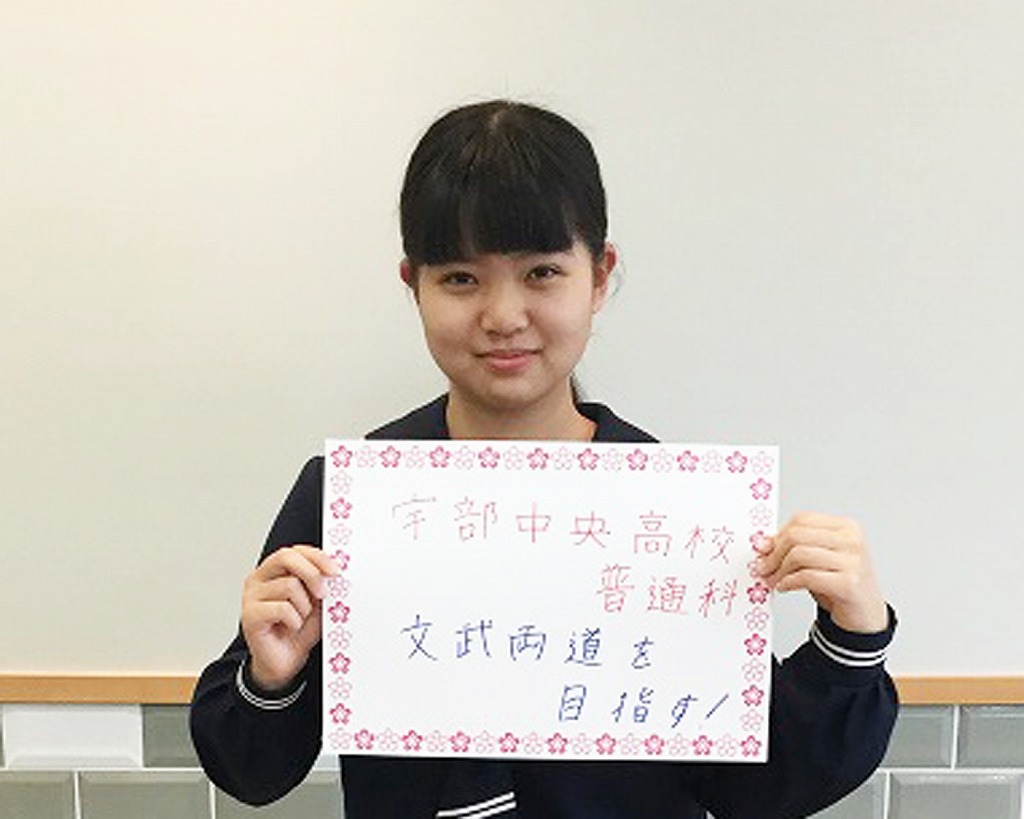 宇部中央高校
普通科
文武両道を
目指す!